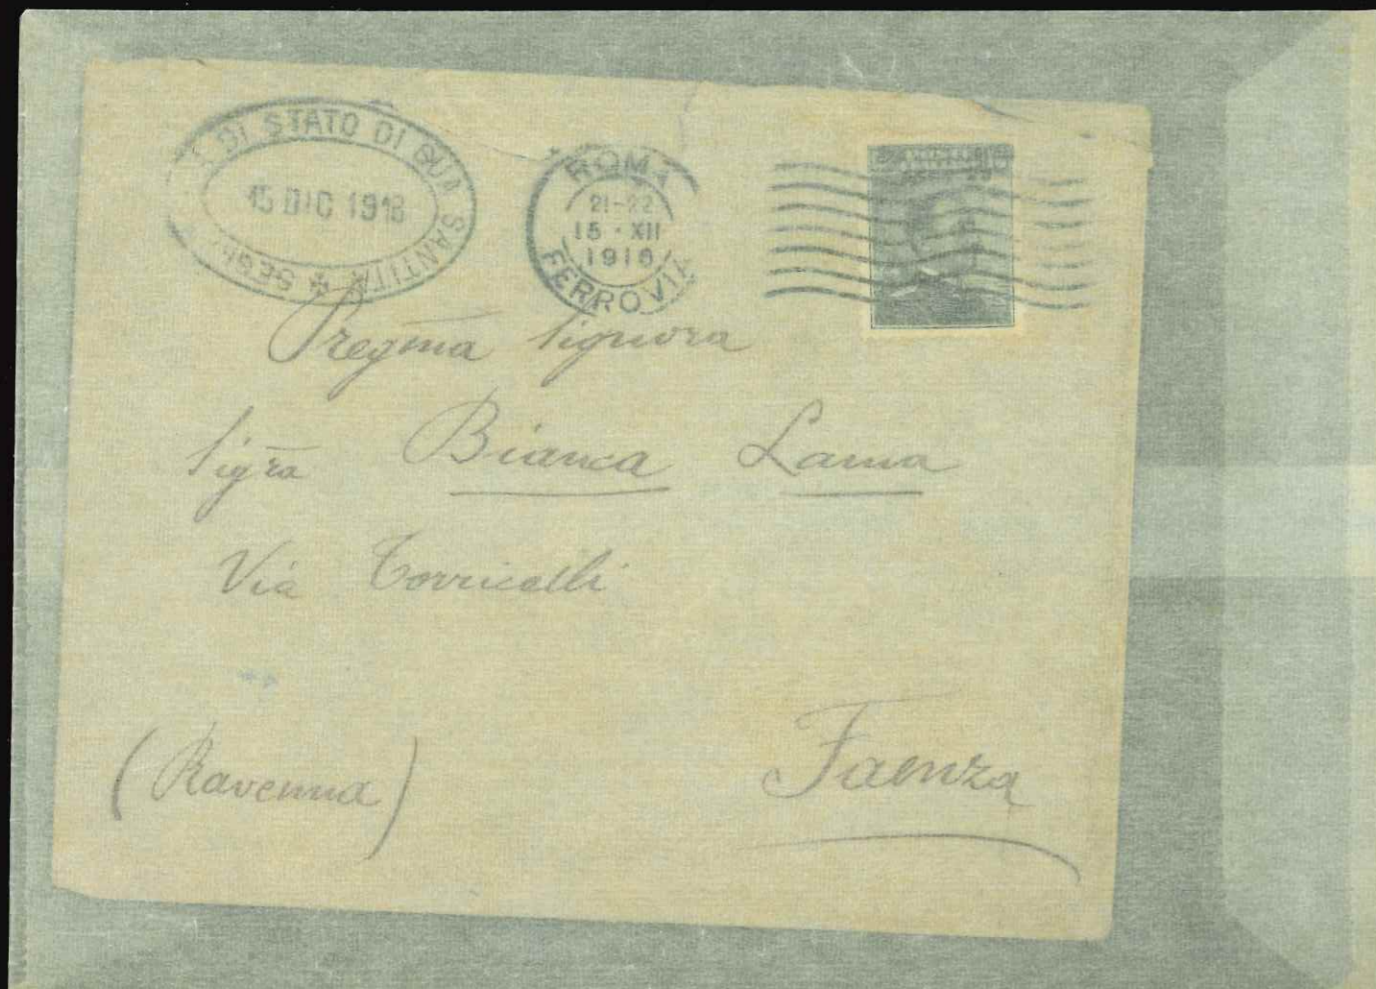 DI STATO DI SUA SANTITÀ
15 DIC 1916
ROMA
21-22
15·XII
1916
FERROVIA
Pregma Signora
Sigra Bianca Lama
Via Torricelli
Faenza
(Ravenna)